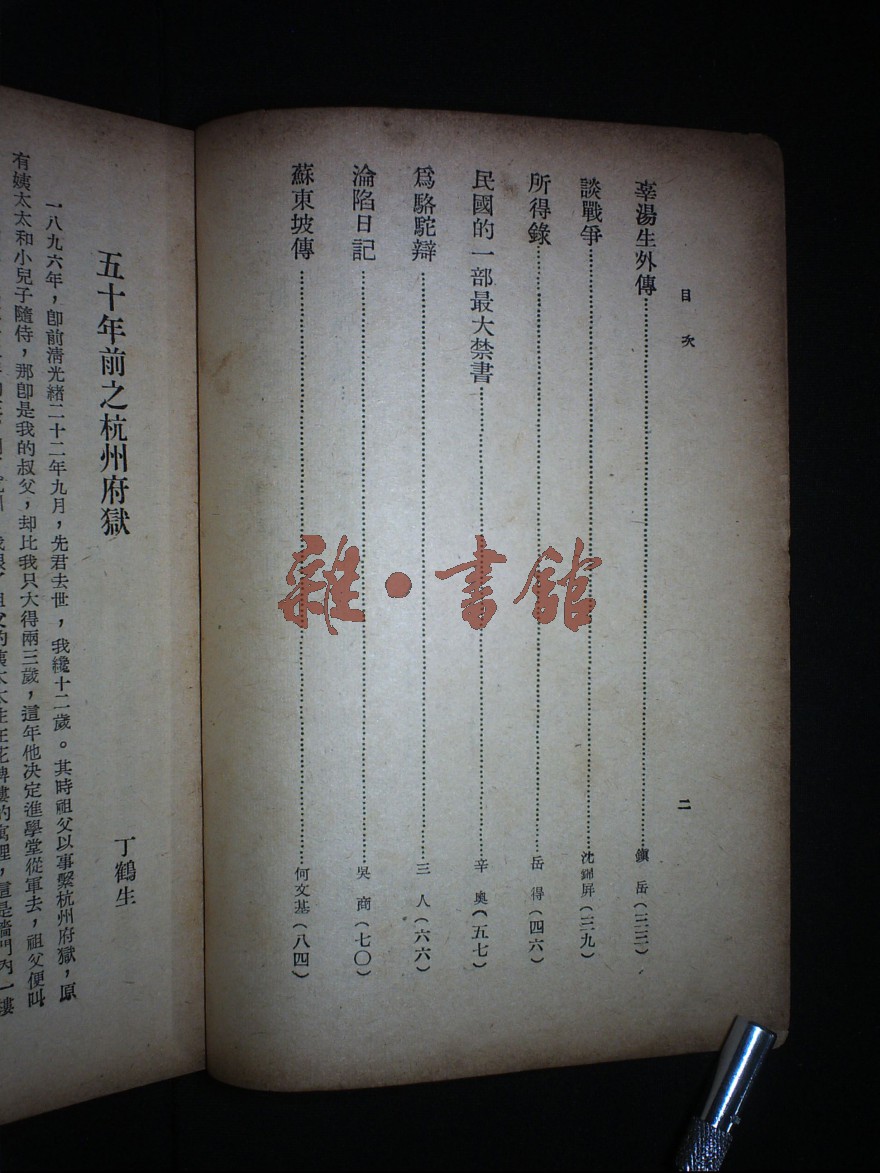 目次
二
辜湯生外傳 鎮岳(三三)
談戰爭 沈錦屏(三九)
所得錄 岳得(四六)
民國的一部最大禁書 辛奧(五七)
爲駱駝辯 三人(六六)
淪陷日記 吳商(七〇)
蘇東坡傳 何文基(八四)
雜·書館
五十年前之杭州府獄
丁鶴生
一八九六年，卽前清光緒二十二年九月，先君去世，我纔十二歲。其時祖父以事繫杭州府獄，原
有姨太太和小兒子隨侍，那卽是我的叔父，却比我只大得兩三歲，這年他決定進學堂從軍去，祖父便叫
祖父的姨太太住在花牌樓的寓裡，這是牆門內一樓